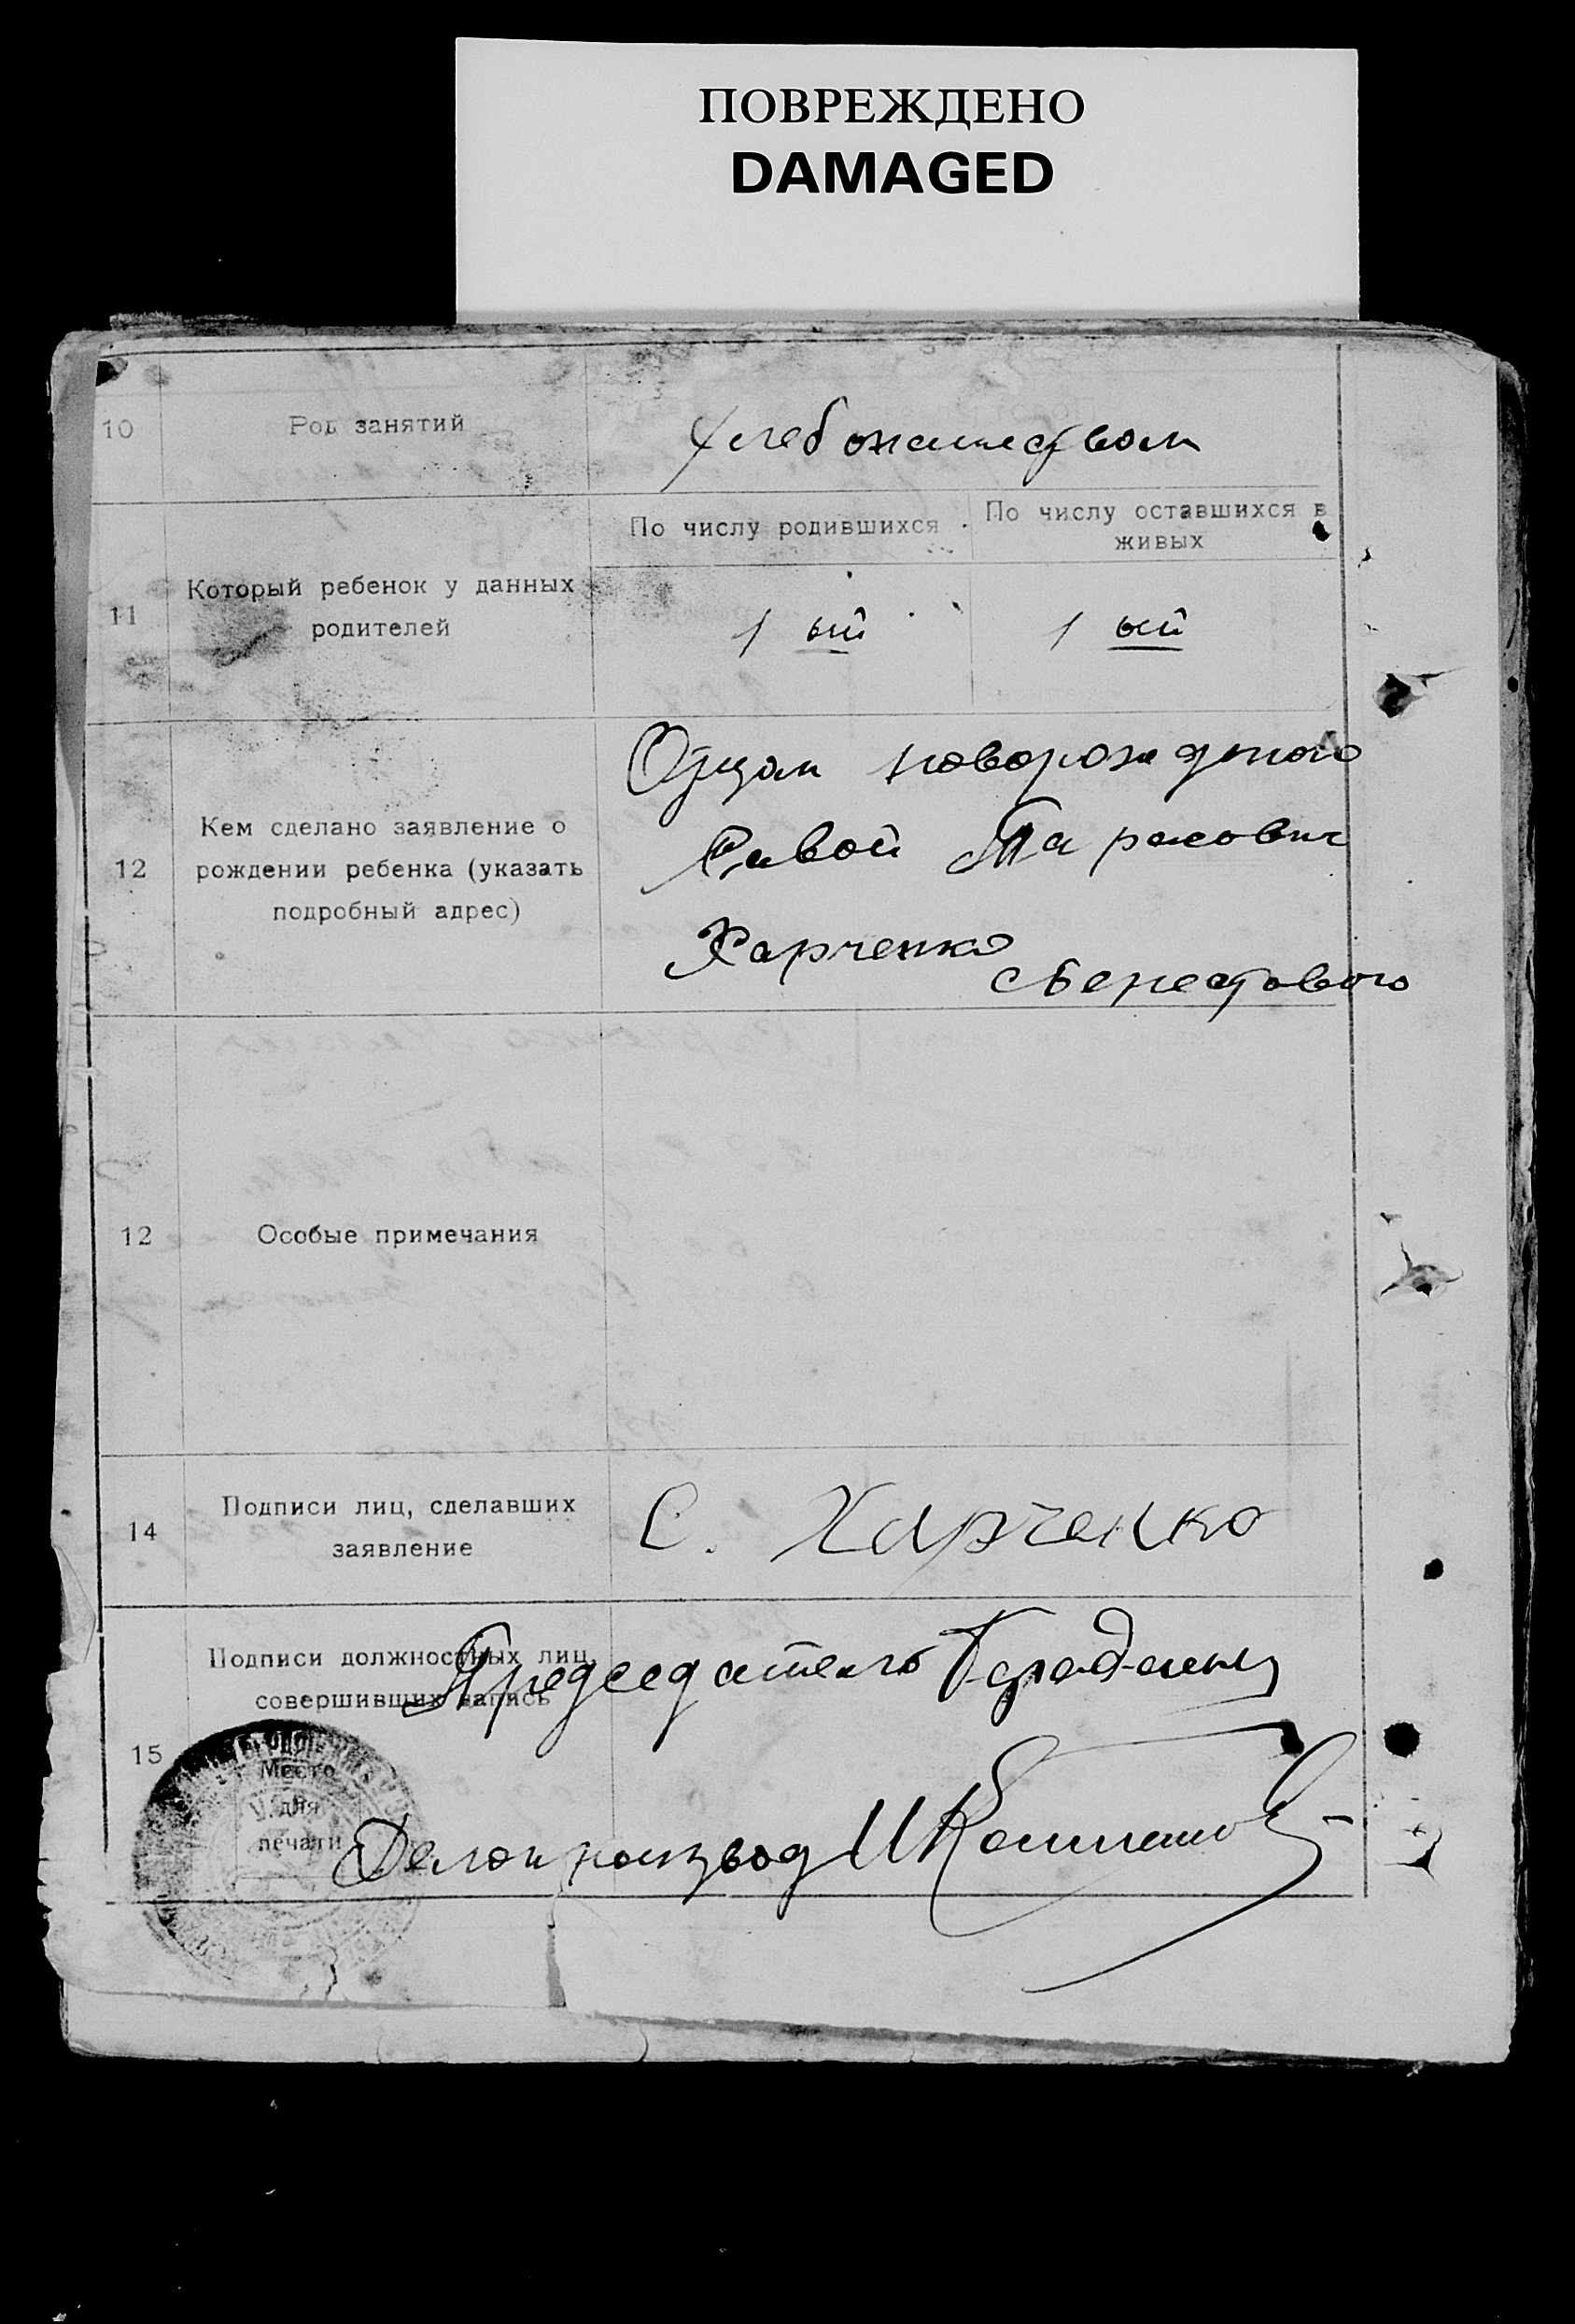 ПОВРЕЖДЕНО
DAMAGED
10 Род занятий
По числу родившихся
По числу оставшихся в
живых
11 Который ребенок у данных
родителей
1 ый
1 ый
Отцом
12 Кем сделано заявление о
рождении ребенка (указать
подробный адрес)
Савой Тарасович
Харченко
с Берестового
12 Особые примечания
14 Подписи лиц, сделавших
заявление
С. Харченко
15 Подписи должностных лиц,
совершивших запись
Председатель
Место
для
печати